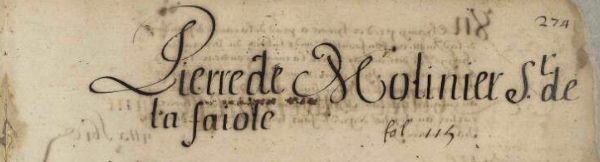 274
Pierre de Molinier S.r de
la faiole
fol. 115